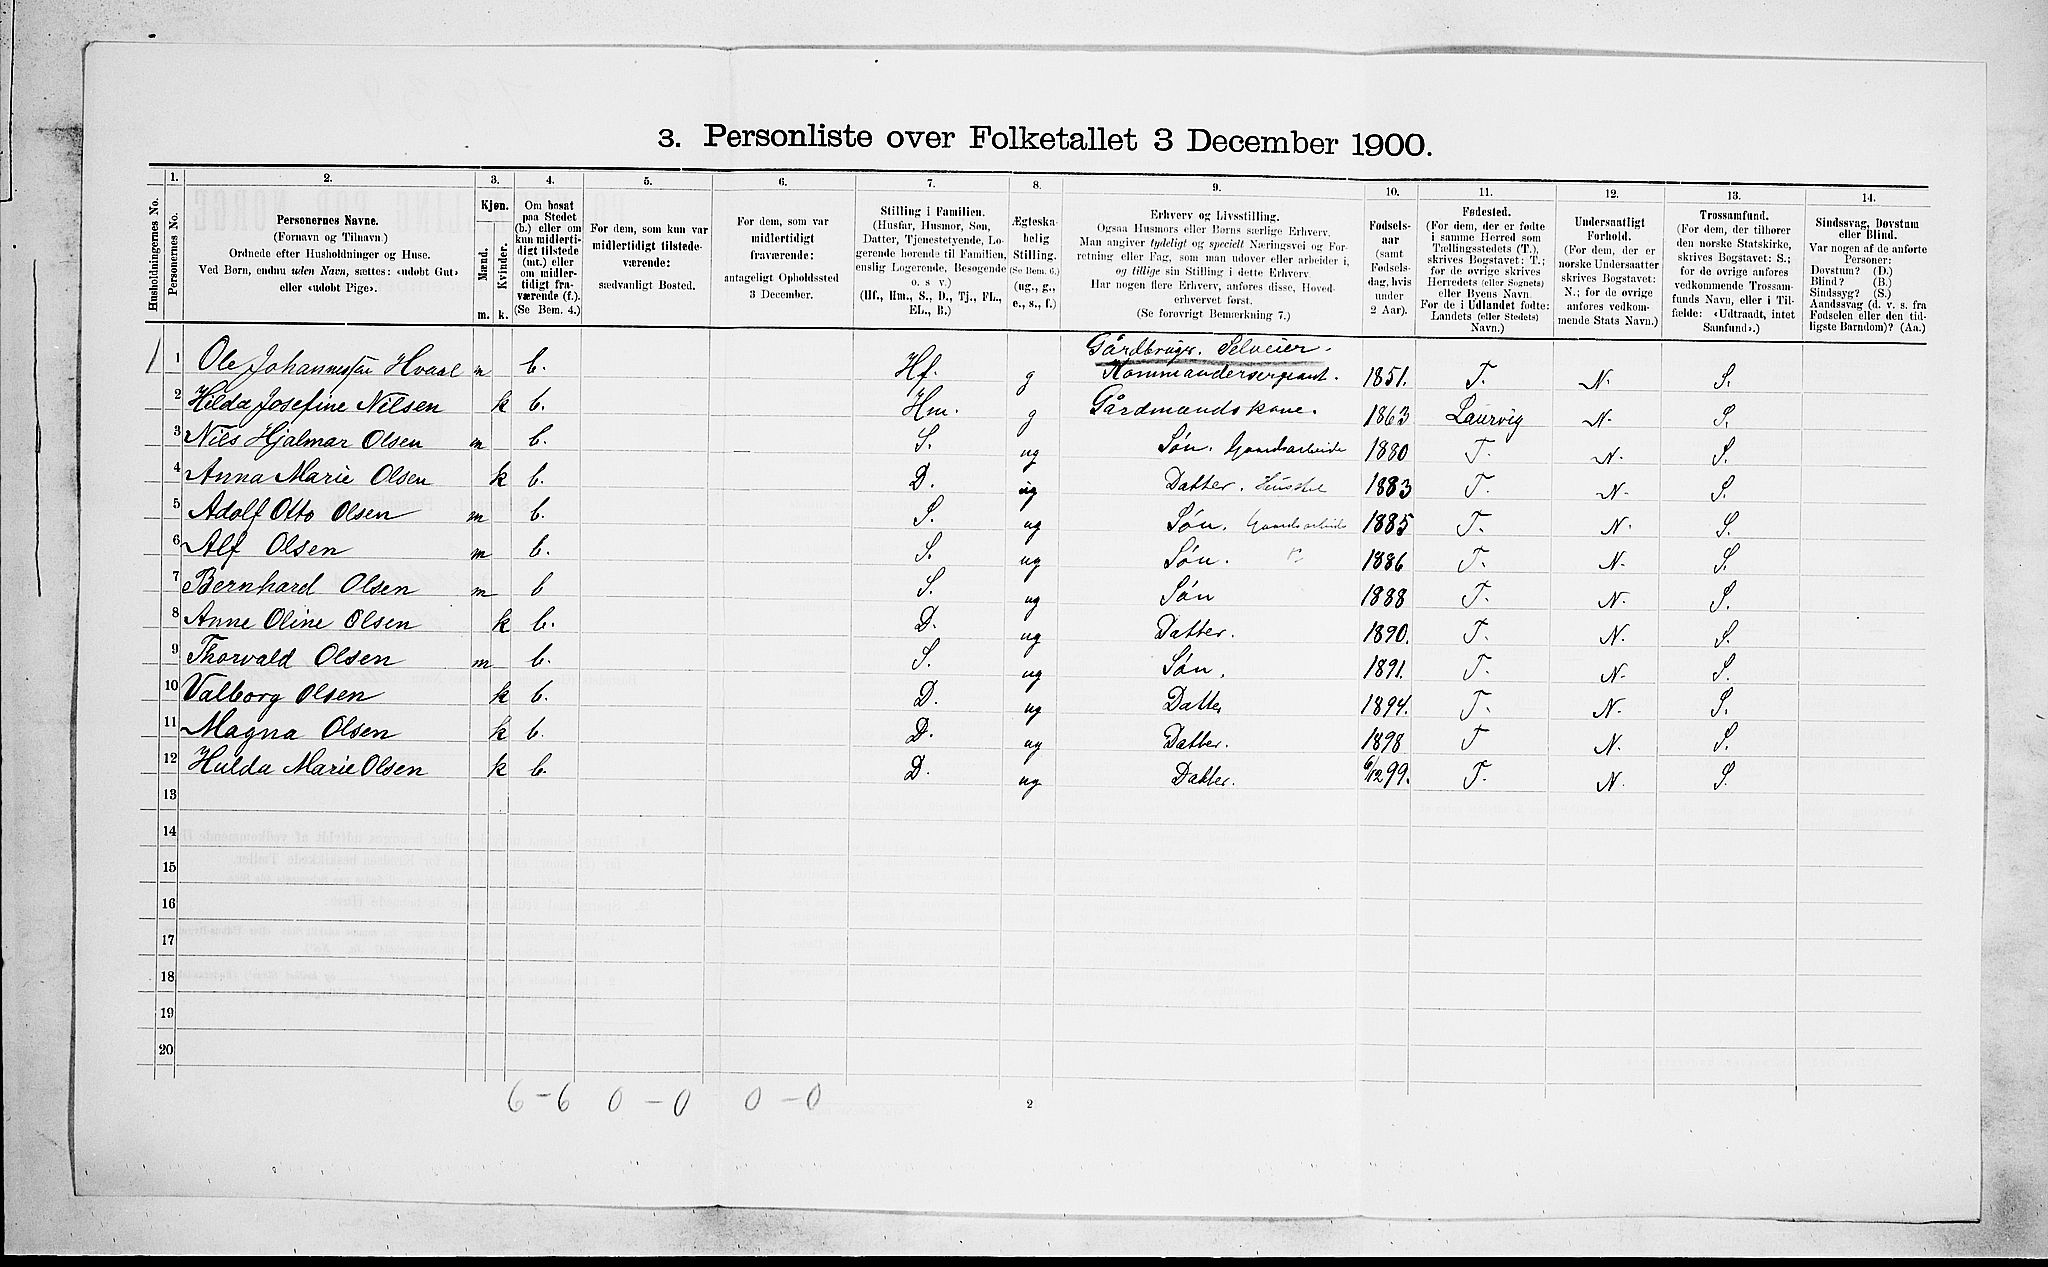 3. Personliste over Folketallet 3 December 1900.
Husholdningernes No.
1.
Personernes No.
2.
Personernes Navne.
(Fornavn og Tilnavn)
Ordnede efter Husholdninger og Huse.
Ved Børn, endnu uden Navn, sættes: «udøbt Gut»
eller «udøbt Pige».
3.
Kjøn.
Mænd.
Kvinder.
m. k.
4.
Om bosat
paa Stedet
(b.) eller om
kun midlerti-
digt tilstede
(mt.) eller
om midler-
tidigt fra-
værende (f.).
(Se Bem. 4.)
5.
For dem, som kun var
midlertidigt tilstede-
værende:
sædvanligt Bosted.
6.
For dem, som var
midlertidigt
fraværende:
antageligt Opholdssted
3 December.
7.
Stilling i Familien.
(Husfar, Husmor, Søn,
Datter, Tjenestetyende, Lo-
gerende hørende til Familien,
enslig Logerende, Besøgende
o. s. v.)
(Hf., Hm., S., D., Tj., FL.,
EL., B.)
8.
Ægteska-
belig
Stilling.
(Se Bem. 6.)
(ug., g.,
e., s., f.)
9.
Erhverv og Livsstilling.
Ogsaa Husmors eller Børns særlige Erhverv.
Man angiver tydeligt og specielt Næringsvei og For-
retning eller Fag, som man udøver eller arbeider i,
og tillige sin Stilling i dette Erhverv.
Har nogen flere Erhverv, anføres disse, Hoved-
erhvervet først.
(Se forøvrigt Bemærkning 7.)
10.
Fødsels-
aar
(samt
Fødsels-
dag, hvis
under
2 Aar).
11.
Fødested.
(For dem, der er fødte
i samme Herred som
Tællingsstedets (T.),
skrives Bogstavet: T.;
for de øvrige skrives
Herredets (eller Sognets)
eller Byens Navn.
For de i Udlandet fødte:
Landets (eller Stedets)
Navn.)
12.
Undersaatligt
Forhold.
(For dem, der er
norske Undersaatter
skrives Bogstavet:
N.; for de øvrige
anføres vedkom-
mende Stats Navn.)
13.
Trossamfund.
(For dem, der tilhører
den norske Statskirke,
skrives Bogstavet: S.;
for de øvrige anføres
vedkommende Trossam-
funds Navn, eller i Til-
fælde: «Udtraadt, intet
Samfund».)
14.
Sindssvag, Døvstum
eller Blind.
Var nogen af de anførte
Personer:
Døvstum? (D.)
Blind? (B.)
Sindssyg? (S.)
Aandssvag (d. v. s. fra
Fødselen eller den tid-
ligste Barndom)? (Aa.)
1 1 Ole Johannessen Hvaal m b. Hf. g Gårdbruger. Selveier. Kommandersergeant. 1851. T. N. S.
2 Hilda Josefine Nilsen k b. Hm. g Gårdmandskone. 1863 Laurvig N. S.
3 Nils Hjalmar Olsen m b. S. ug Søn. Gaardsarbeide 1880 T. N. S.
4 Anna Marie Olsen k b. D. ug Datter. Husstel 1883 T. N. S.
5 Adolf Otto Olsen m b. S. ug Søn. Gaardsarbeide 1885 T. N. S.
6 Alf Olsen m b. S. ug Søn. 1886 T. N. S.
7 Bernhard Olsen m b S. ug Søn 1888 T. N. S.
8 Anne Oline Olsen k b. D. ug Datter. 1890. T. N. S.
9 Thorvald Olsen m b. S. ug Søn. 1891. T. N. S.
10 Valborg Olsen k b. D. ug Datter 1894. T. N. S.
11 Magna Olsen k b. D. ug Datter. 1898 T N. S.
12 Hulda Marie Olsen k b. D. ug Datter. 6/12 99. T. N. S.
13
14
15
16
17
18
19
20
6 - 6 0 - 0 0 - 0
2